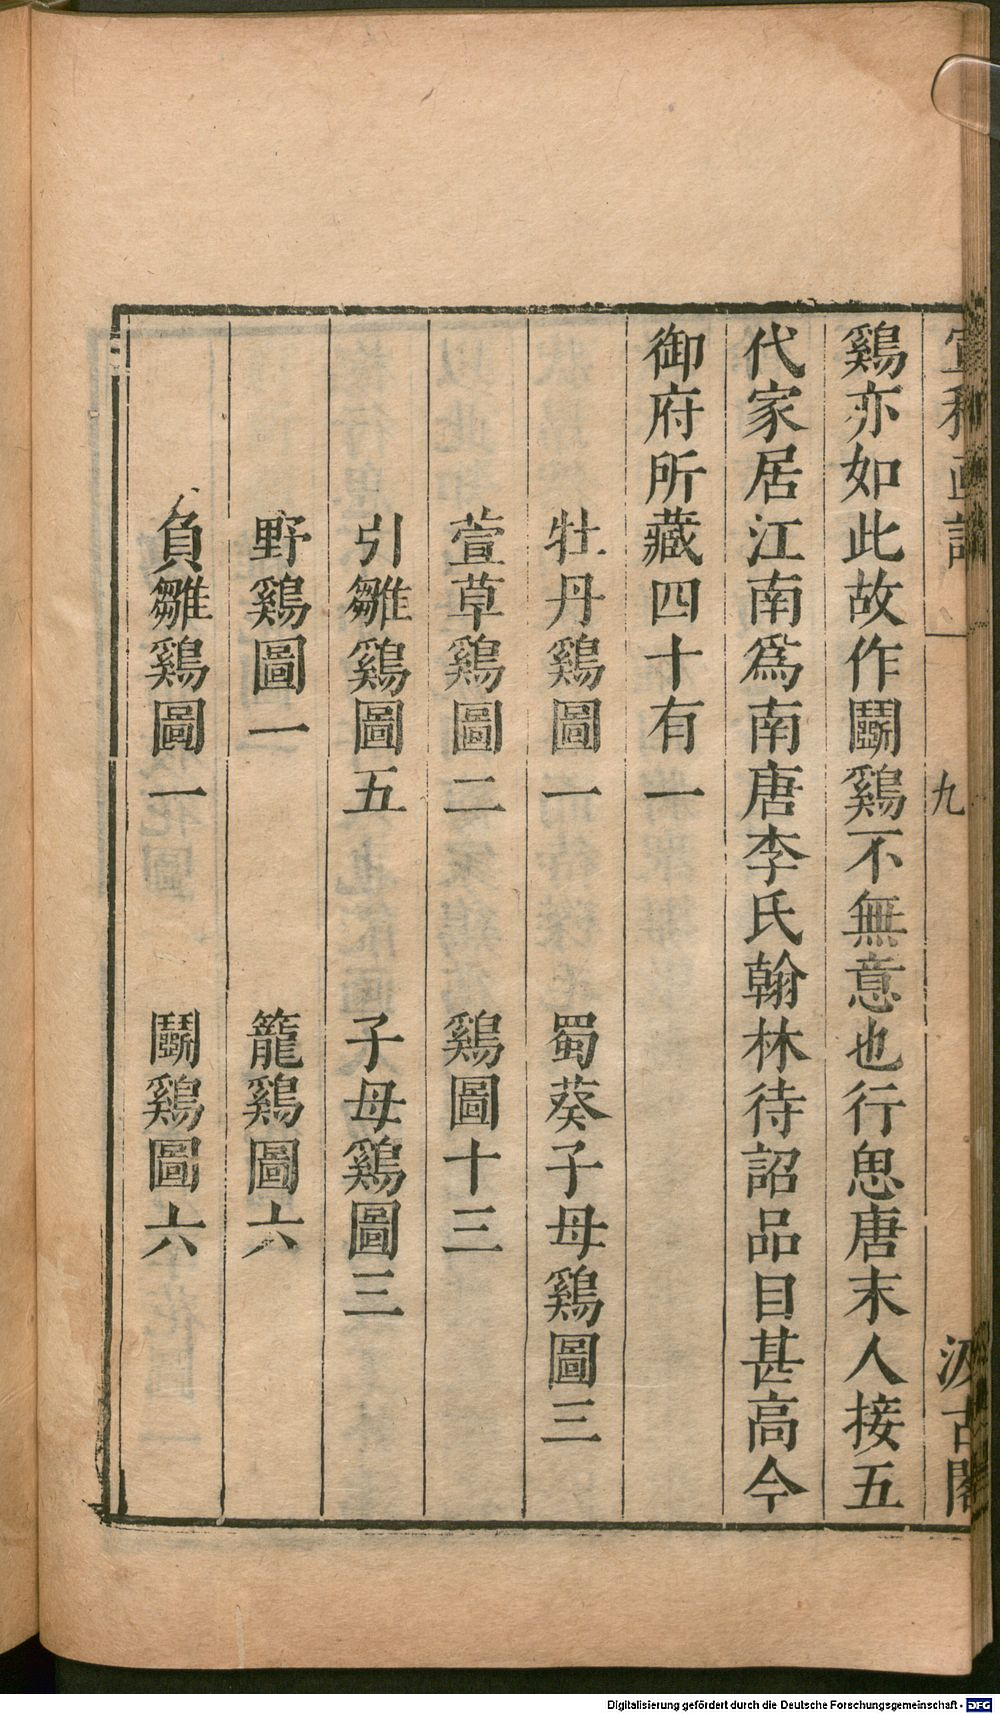 雞亦如此故作鬭雞不無意也行思唐末人接五
代家居江南爲南唐李氏翰林待詔品目甚高今
御府所藏四十有一
牡丹雞圖一　蜀葵子母雞圖三
萱草雞圖二　雞圖十三
引雛雞圖五　子母雞圖三
野雞圖一　籠雞圖六
負雛雞圖一　鬭雞圖六
九
汲古閣
Digitalisierung gefördert durch die Deutsche Forschungsgemeinschaft - DFG